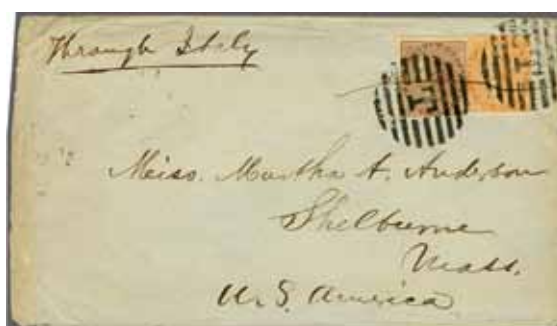 Through Italy
Meiss. Martha A. Anderson
Shelburne
Mass.
U.S. America